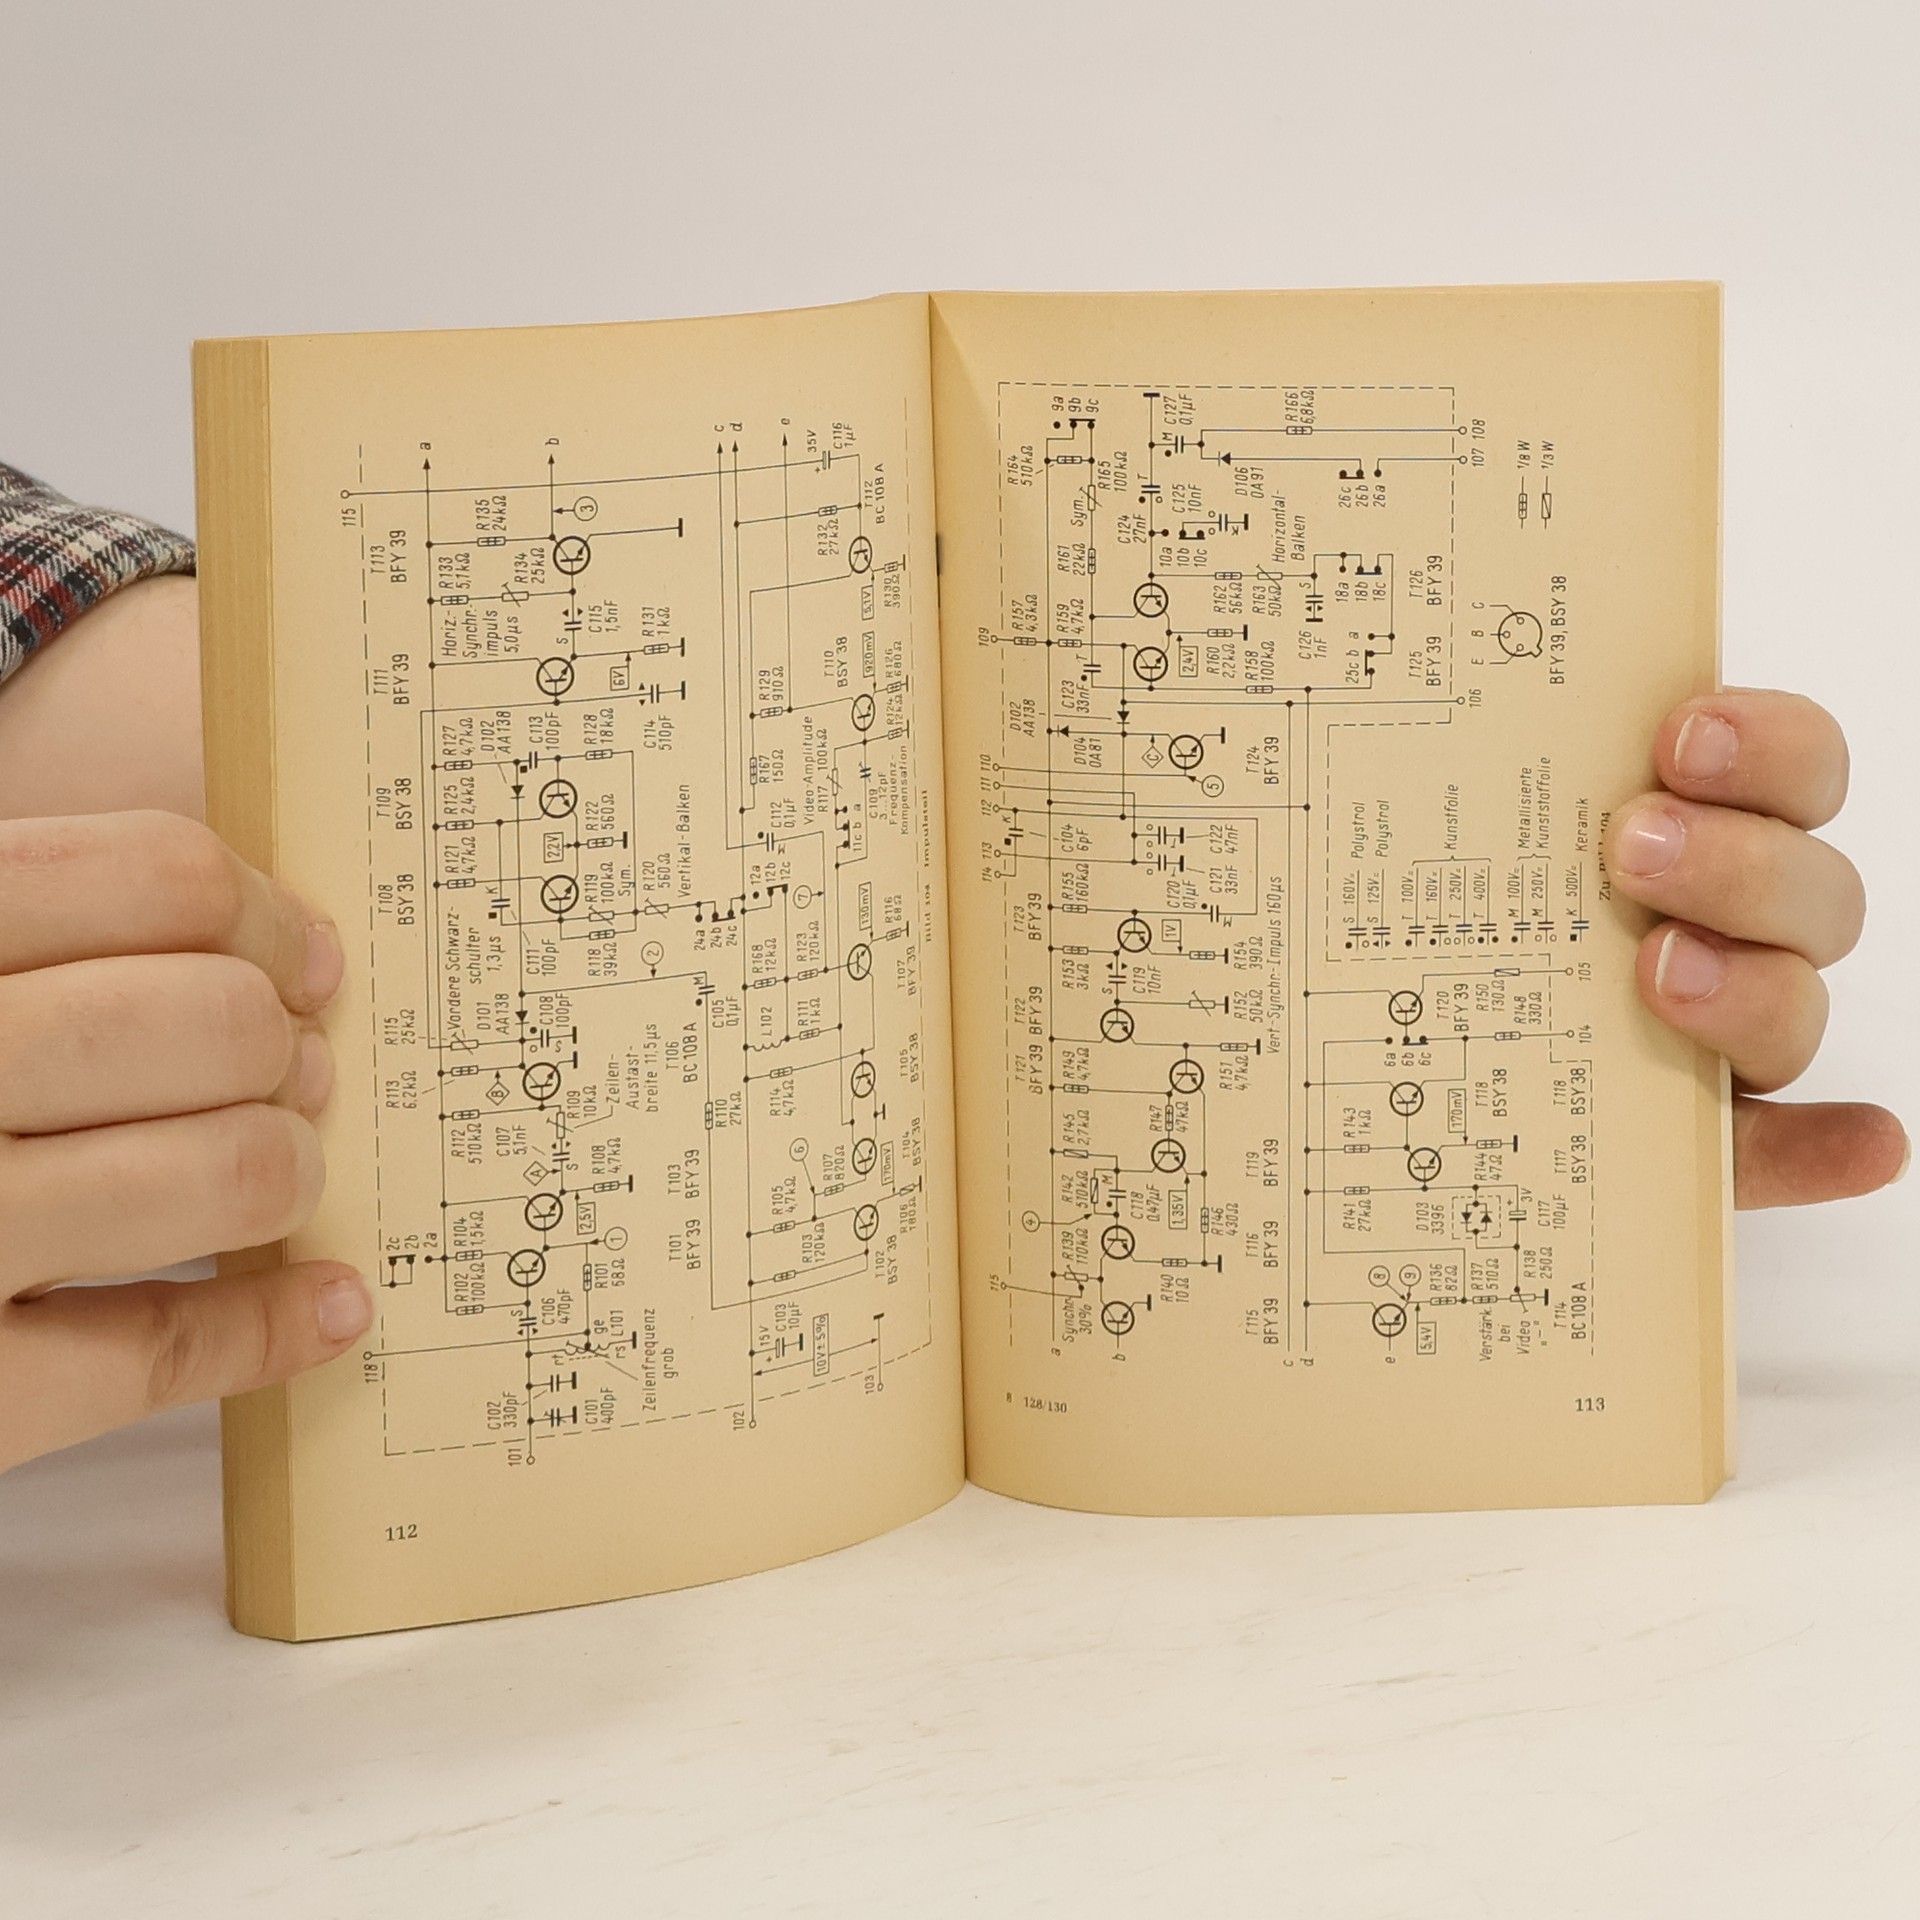 115
T113
BFY 39
T111
BFY 39
T109
BSY 38
T108
BSY 38
a
b
c
d
e
R135
24kΩ
R133
5,1kΩ
R134
25kΩ
Horiz.-
Synchr.-
impuls
5,0µs
3
S
C115
1,5nF
R131
1kΩ
6V
C114
510pF
R127
4,7kΩ
D102
AA138
C113
100pF
R128
18kΩ
R125
2,4kΩ
R121
4,7kΩ
2,2V
R122
560Ω
K
R119
100kΩ
Sym.
R120
560Ω
Vertikal-Balken
Vordere Schwarz-
schulter
1,3µs
C111
100pF
R118
39kΩ
2
24a
24b
24c
R115
25kΩ
D101
AA138
C108
100pF
R113
6,2kΩ
B
R109
10kΩ
Zeilen-
Austast-
breite 11,5µs
T106
BC 108 A
C105
0,1µF
M
R112
510kΩ
C107
5,1nF
A
S
R108
4,7kΩ
T103
BFY 39
T101
BFY 39
R110
27kΩ
2c
2b
2a
R104
1,5kΩ
R102
100kΩ
2,5V
1
R101
68Ω
S
C106
470pF
118
rt
ge
rs
L101
Zeilenfrequenz
grob
C102
330pF
C101
400pF
101
35V
C116
1µF
T112
BC 108 A
R132
27kΩ
5,1V
R130
390Ω
R129
910Ω
T110
BSY 38
920mV
R126
680Ω
R124
12kΩ
R167
150Ω
Video-Amplitude
R117 100kΩ
C109
3...12pF
Frequenz-
Kompensation
C112
0,1µF
11c b a
12a
12b
12c
7
130mV
R116
68Ω
T107
BFY 39
R168
12kΩ
R123
120kΩ
L102
R111
1kΩ
R114
4,7kΩ
T105
BSY 38
6
R107
820Ω
170mV
T104
BSY 38
R105
4,7kΩ
R103
120kΩ
R106
180Ω
T102
BSY 38
15V
C103
10µF
10V±5%
103
102
Bild 104 Impulsteil
112
R164
510kΩ
9a
9b
9c
R165
100kΩ
Sym.
M
C127
0,1µF
R166
6,8kΩ
108
107
D106
OA91
26c
26b
26a
T
C124
27nF
C125
10nF
10a
10b
10c
R161
22kΩ
Horizontal-
Balken
R162
56kΩ
R163
50kΩ
S
C126
1nF
18a
18b
18c
T126
BFY 39
T125
BFY 39
25c b a
109
R157
4,3kΩ
R159
4,7kΩ
T
2,4V
R160
2,2kΩ
R158
100kΩ
C123
33nF
D102
AA138
D104
OA81
C
5
T124
BFY 39
106
110
111
112
113
114
K
C104
6pF
C122
47nF
C120
0,1µF
C121
33nF
R155
160kΩ
T123
BFY 39
1V
R153
3kΩ
R154
390Ω
S
C119
10nF
R152
50kΩ
Vert.-Synchr.-Impuls 160µs
T122
BFY 39
T121
BFY 39
R149
4,7kΩ
R151
4,7kΩ
R145
2,7kΩ
R147
47kΩ
T119
BFY 39
R142
510kΩ
M
C118
0,47µF
1,35V
R146
430Ω
4
R139
110kΩ
R140
10Ω
T116
BFY 39
115
Synchr.
30%
T115
BFY 39
a
b
c
d
e
1/8W
1/3W
E B C
BFY 39, BSY 38
S 160V= Polystrol
S 125V= Polystrol
T 100V=
T 160V=
T 250V=
T 400V=
Kunstfolie
M 100V=
M 250V=
Metallisierte
Kunststoffolie
K 500V= Keramik
105
104
T120
BFY 39
R150
130Ω
R148
330Ω
6a
6b
6c
T118
BSY 38
T118
BSY 38
R143
1kΩ
170mV
R144
47Ω
T117
BSY 38
R141
27kΩ
D103
3396
3V
C117
100µF
8
9
R136
82Ω
R137
510Ω
R138
250Ω
5,4V
Verstärk.
bei
Video
"–"
T114
BC 108 A
8 128/130
113